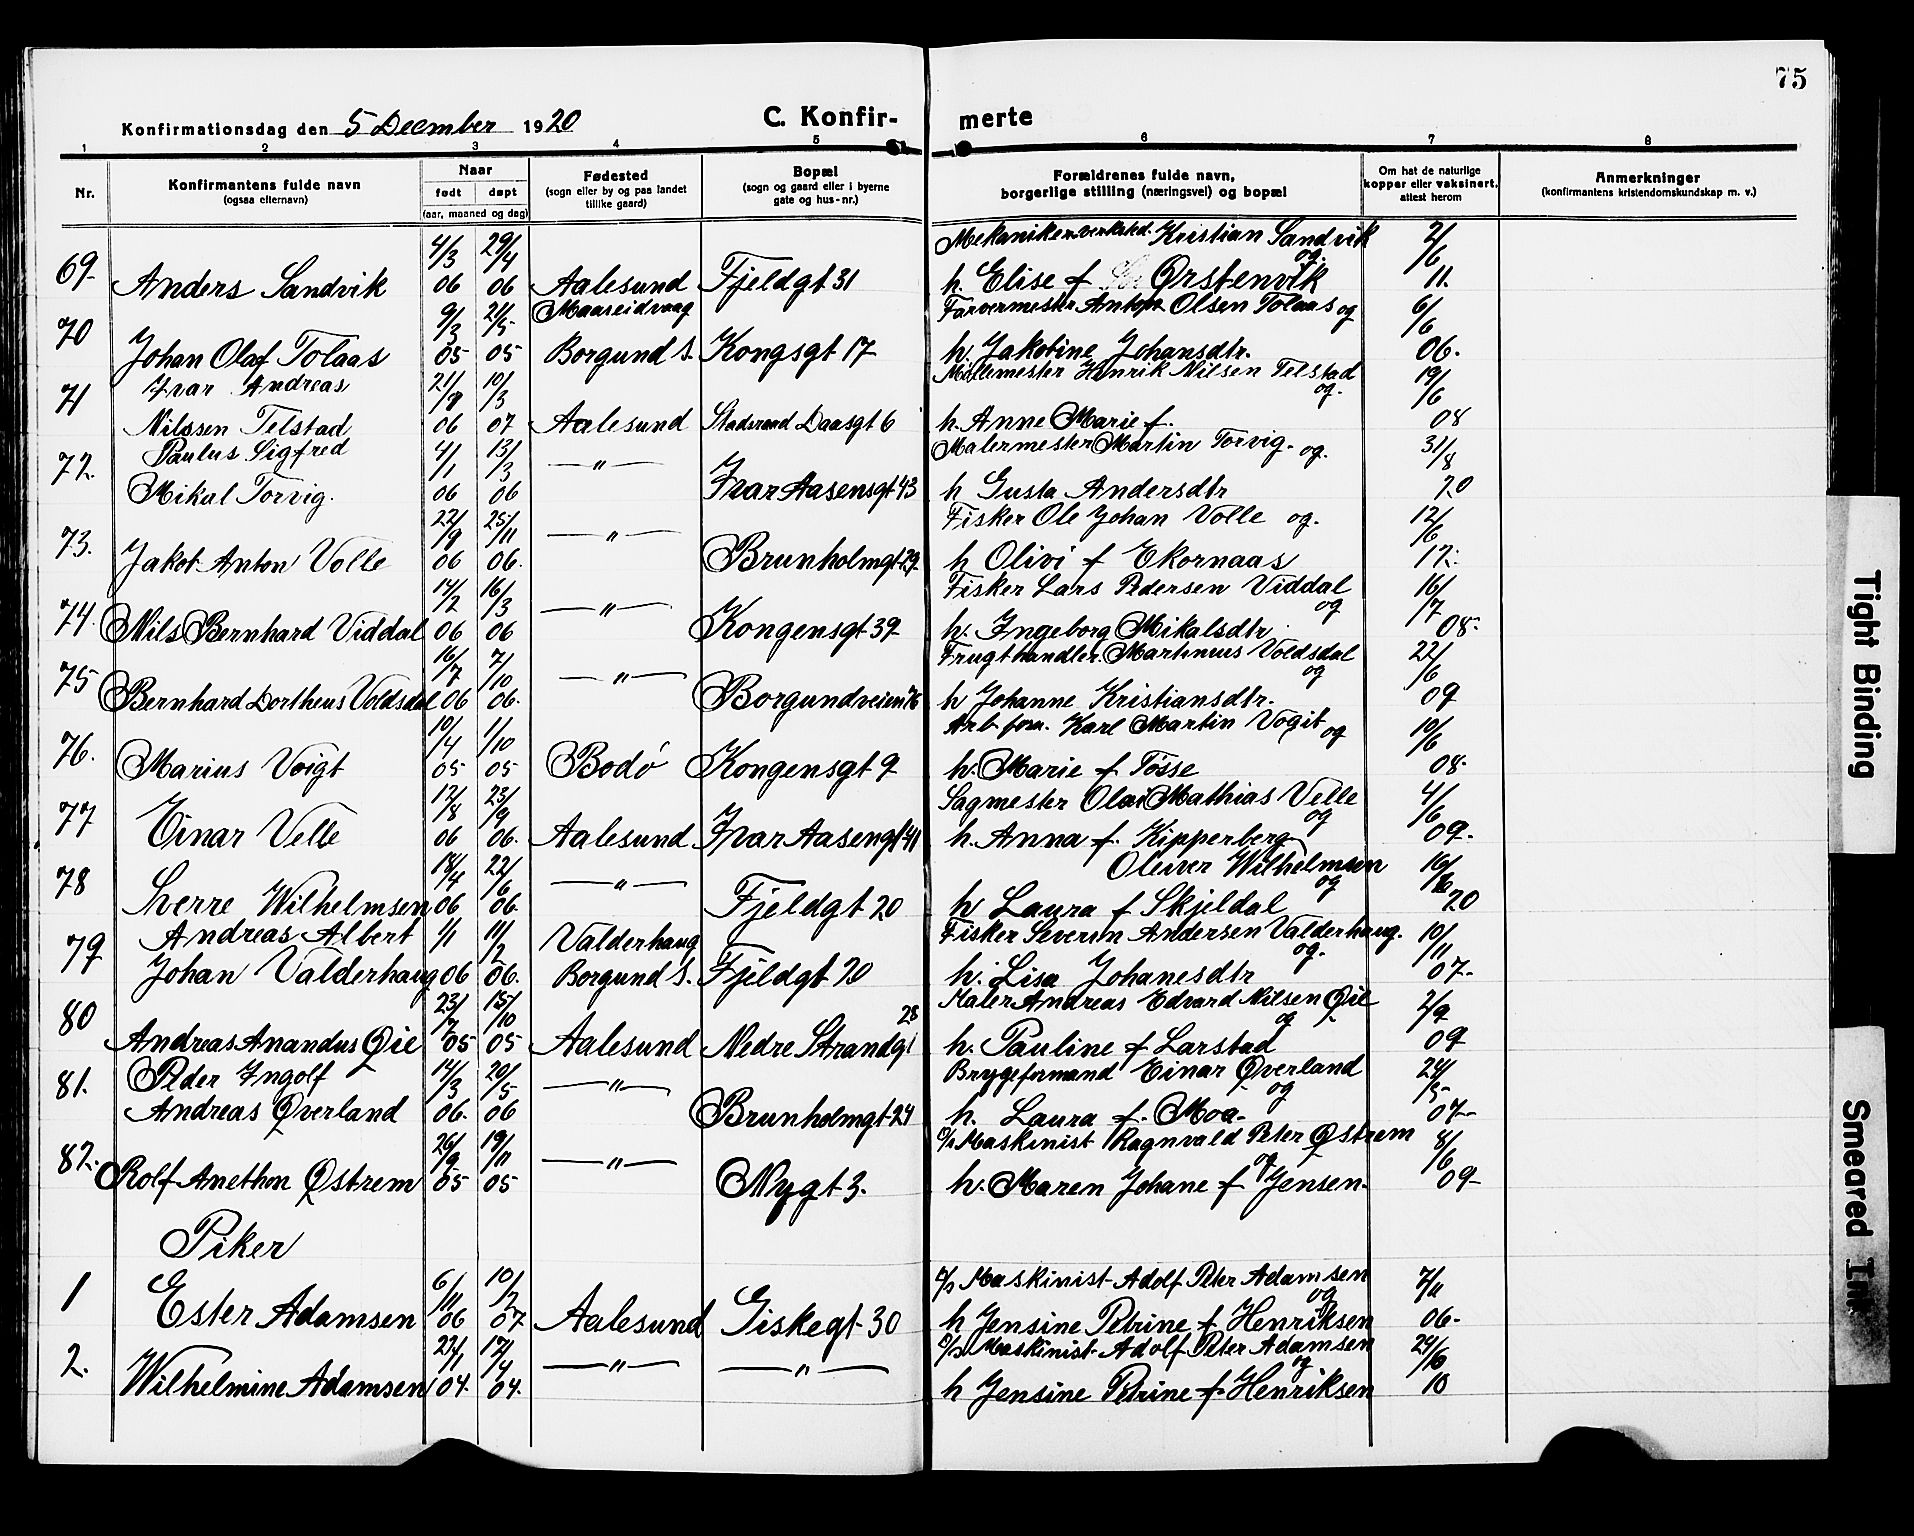 75
Konfirmationsdag den 5 December 1920 C. Konfir- merte
1 2 3 4 5 6 7 8
Nr. Konfirmantens fulde navn (ogsaa efternavn) Naar født døpt (aar, maaned og dag) Fødested (sogn eller by og paa landet tillike gaard) Bopæl (sogn og gaard eller i byerne gate og hus-nr.) Forældrenes fulde navn, borgerlige stilling (næringsvei) og bopæl Om hat de naturlige kopper eller vaksinert, attest herom Anmerkninger (konfirmantens kristendomskundskap m. v.)
4/3 29/4 Mekanikerverksted. Kristian Sandvik og. 2/6
69- Anders Sandvik 06 06 Aalesund Fjeldgt 31 h. Elise f Ørstenvik 11.
9/3 21/5 Maaseidvaag Farvermester Anton Olsen Tolaas og 6/6
70 Johan Olaf Tolaas 05 05 Borgund S. Kongsgt 17 h. Jakobine Johansdtr. 06.
Ivar Andreas 21/8 10/3 Malemester Henrik Nilsen Telstad og. 19/6
71 Nilssen Telstad 06 07 Aalesund Daasgt 6 h. Anne Marie f. 08
Paulus Sigfred 4/1 13/3 Malermester Martin Torvig. og. 31/8
72. Mikal Torvig. 06 06 —"— Ivar Aasensgt 43 h Gusta Andersdtr 20
22/9 25/11 Fisker Ole Johan Volle og. 12/6
73. Jakob Anton Volle 06 06. —"— Brunholmgt 29 h Olivi f Ekornaas 17.
14/2 16/3 Fisker Lars Pedersen Viddal og 16/7
74. Nils Bernhard Viddal 06 06 —"— Kongensgt 39 h. Ingeborg Mikalsdtr 08.
16/7 7/10 Frugthandler. Martinius Voldsdal og 22/6
75 Bernhard Dortheus Voldsdal 06 06. —"— Borgundveien 76 h Johanne Kristiansdtr. 09
10/4 1/10 Arb. form. Karl Martin Vogit og 10/6
76. Marius Voigt 05 05 Bodø Kongensgt 9 h. Marie f Tösse 08.
12/8 23/9 Sagmester Olai Mathias Velle og 4/6
77 Einar Velle 06 06. Aalesund Ivar Aasengt 41 h. Anna f. Kipperberg 09.
18/4 22/6 Oliver Wilhelmsen og 10/6
78 Sverre Wilhelmsen 06 06. —"— Fjeldgt 20 h Laura f Skjeldal 20
Andreas Albert 1/1 11/2 Valderhaug Fisker Severin Andersen Valderhaug. og. 10/11
79 Johan Valderhaug 06 06. Borgund S. Fjeldgt 20 h. Lisa Johanesdtr 07.
23/7 15/10 28 Maler Andreas Edvard Nilsen Øie og 2/9
80 Andreas Anandus Øie 05 05 Aalesund Nedre Strandgt h. Pauline f Larstad 09
Peder Ingolf 14/3 20/5 Bryggeformand Einar Øverland og 24/5
81. Andreas Øverland 06. 06 —"— Brunholmgt 24 h. Laura f. Moa. 07-
26/9 19/11 Maskinist Ragnvald Peter Østrem og 8/6
82. Rolf Anethon Østrem 05 05 —"— Nygt 3. h. Maren Johane f Jensen. 09-
Piker
6/11 10/2 Maskinist Adolf Peter Adamsen og 7/11
1 Ester Adamsen 06 07 Aalesund Giskegt 30 h Jensine Petrine f Henriksen 06-
17/4 Maskinist Adolf Peter Adamsen og 24/6
2. Wilhelmine Adamsen 04. 04. —"— —"— h Jensine Petrine f Henriksen 10
Tight Binding
Smeared Ink